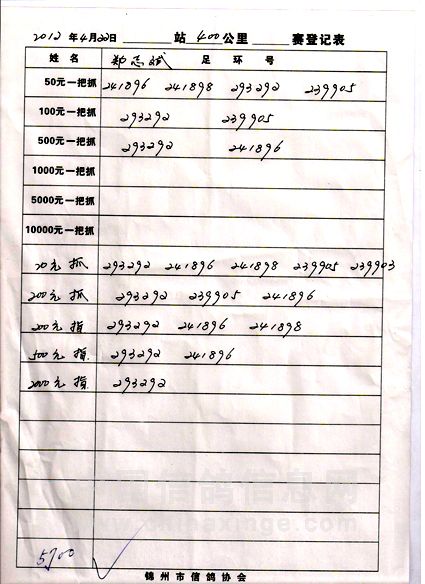 2012年4月22日 站 400公里 赛登记表
姓名 郑志斌 足环号
50元一把抓 241896 241898 293292 239905
100元一把抓 293292 239905
500元一把抓 293292 241896
1000元一把抓
5000元一把抓
10000元一把抓
20元抓 293292 241896 241898 239905 239903
200元抓 293292 239905 241896
200元指 293292 241896 241898
500元指 293292 241896
2000元指 293292
中国信鸽信息网
www.chinaxinge.com
5700
锦州市信鸽协会